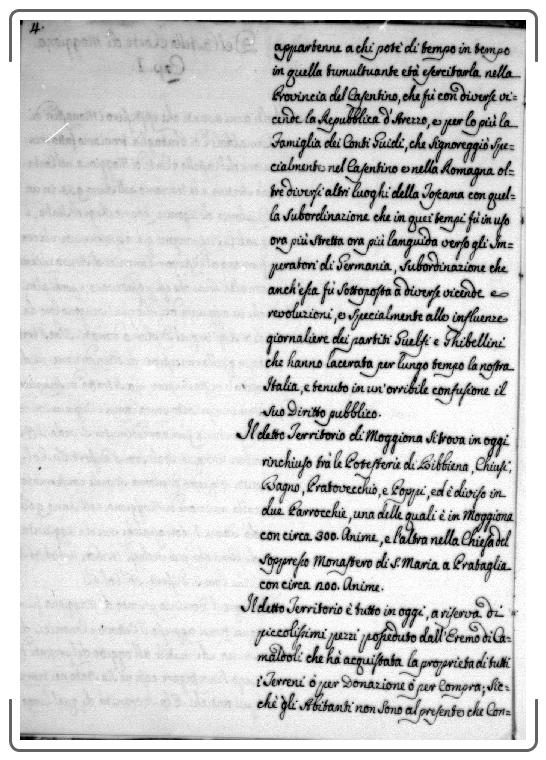 4.
appartenne a chi potè di tempo in tempo
in quella tumultuante età esercitarla nella
Provincia del Casentino, che fù con diverse vi-
cende la Repubblica d'Arezzo, e per lo più la
Famiglia dei Conti Guidi, che signoreggiò spe-
cialmente nel Casentino e nella Romagna ol-
tre diversi altri luoghi della Toscana con quel-
la subordinazione che in quei tempi fù in uso
ora più stretta ora più languida verso gli Im-
peratori di Germania, subordinazione che
anch'essa fù sottoposta a diverse vicende e
revoluzioni, e specialmente alle influenze
giornaliere dei partiti Guelfi e Ghibellini
che hanno lacerata per lungo tempo la nostra
Italia, e tenuto in un'orribile confusione il
suo Diritto pubblico.
Il detto Territorio di Moggiona si trova in oggi
rinchiuso trà le Potesterie di Bibbiena, Chiusi,
Bagno, Pratovecchio, e Poppi, ed è diviso in
due Parrocchie, una delle quali è in Moggiona
con circa 300. Anime, e l'altra nella Chiesa del
soppresso Monastero di S. Maria a Prataglia
con circa 200. Anime.
Il detto Territorio è tutto in oggi, a riserva di
piccolissimi pezzi posseduto dall'Eremo di Ca-
maldoli che hà acquistata la proprietà di tutti
i Terreni ò per Donazione ò per Compra; Sic-
chè gli Abitanti non sono al presente che Con-